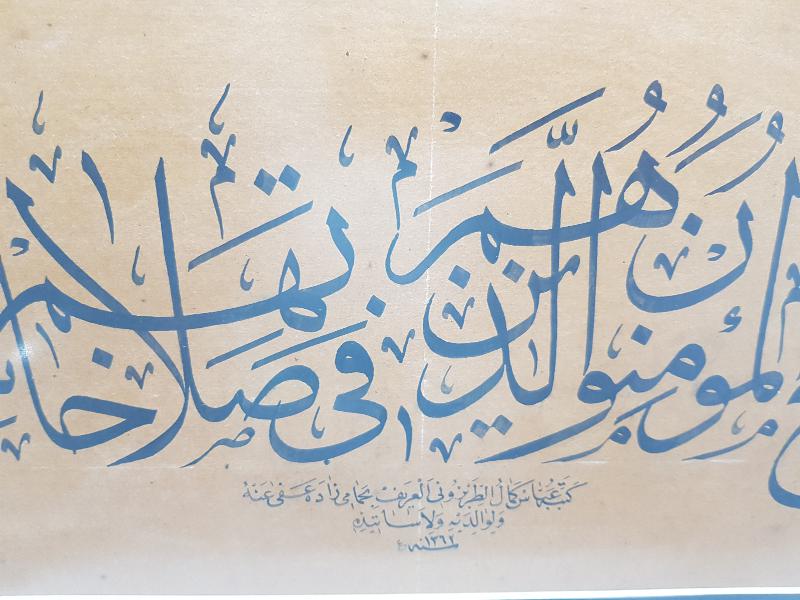 المؤمنون الذين هم في صلاتهم خا
كتبه عباس كمال الطربزوني العريف بحمامي زاده عفي عنه
ولوالديه ولاساتيذه
سنه ١٣٦٢